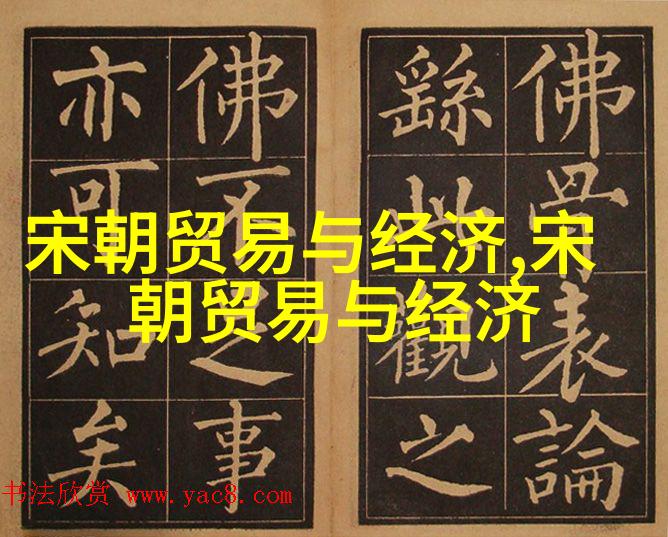 佛骨表論
繇此觀之
佛不足事
亦可知矣
宋朝贸易与经济,宋
朝贸易与经济
书法欣赏 www.yac8.com